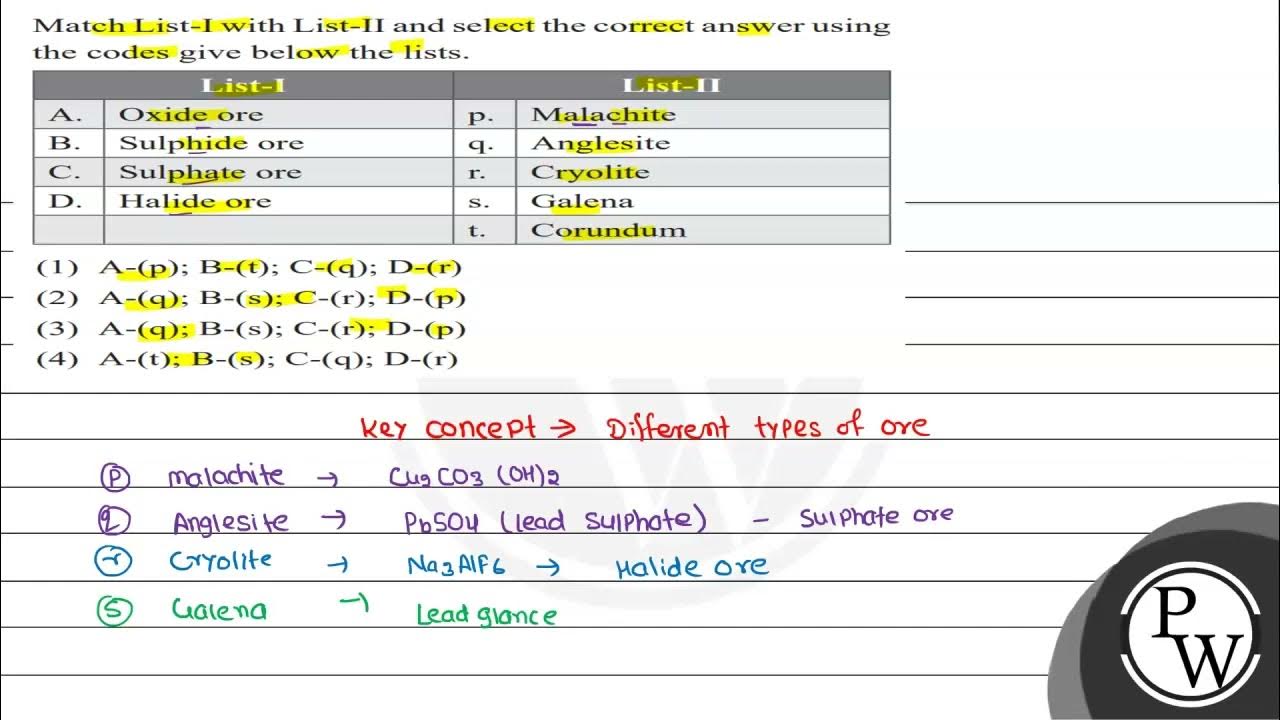 Match List-I with List-II and select the correct answer using
the codes give below the lists.
List-I List-II
A. Oxide ore p. Malachite
B. Sulphide ore q. Anglesite
C. Sulphate ore r. Cryolite
D. Halide ore s. Galena
t. Corundum
(1) A-(p); B-(t); C-(q); D-(r)
(2) A-(q); B-(s); C-(r); D-(p)
(3) A-(q); B-(s); C-(r); D-(p)
(4) A-(t); B-(s); C-(q); D-(r)
Key concept → Different types of ore
(P) malachite → Cu2CO3 (OH)2
(q) Anglesite → PbSO4 (lead sulphate) - sulphate ore
(r) Cryolite → Na3AlF6 → Halide ore
(S) Galena → Lead glance
PW